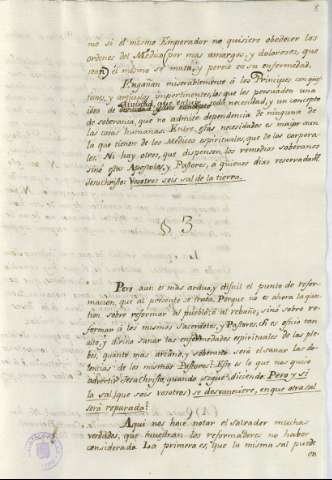 no si el mismo Emperador no quisiere obedecer las
ordenes del Medico (por mas amargos, y dolorosos, que
sean) el mismo se mata, y perece en su enfermedad.
Engañan miserablemente á los Principes con
y artificios impertinentes, los que les persuaden una
idea de necesidad, y un concepto
de soberanía, que no admite dependencia de ninguna de
las cosas humanas. Entre estas necesidades es mayor aun
la que tienen de los Medicos espirituales, que de los corpora-
les. Ni hay otros, que dispensen los remedios soberanos
sinó estos Apostoles, y Pastores, á quienes dias reservados
Jesuchristo: Vosotros sois sal de la tierra.
§ 3
Pero aun es más ardua, y dificil el punto de refor-
macion, que al presente se trata. Porque no es ahora la qües-
tion sobre reformar al pueblo, ó al rebaño, sinó sobre re-
formar á los mismos Sacerdotes, y Pastores. Si es oficio tan
alto, y divino sanar las enfermedades espirituales de las ple-
bes, quanto más arcano, y soberano será el sanar las do-
lencias de los mismos Pastores? Esto es lo que nos quiso
advertir Jesu Christo, quando sigue diciendo: Pero y si
la sal (que sois vosotros) se desvaneciere, en que otra sal
será reparada?
Aqui nos hace notar el salvador muchas
verdades, que muestran los reformadores no haber
considerado. La primera es, que la misma sal puede
en